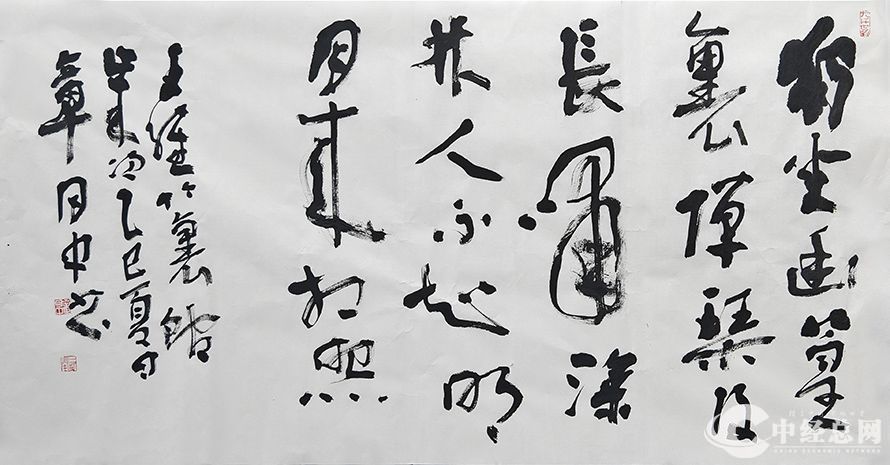 獨坐幽篁
裏彈琴復
長嘯深
林人不知明
月來相照
王維竹裏館
歲次乙巳夏日
章月中书
中经总网